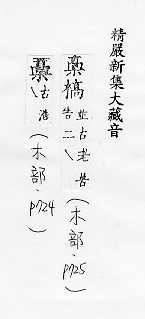 精嚴新集大藏音
槀槁 並古老苦告二\(木部.p725)
\古浩(木部.p724)